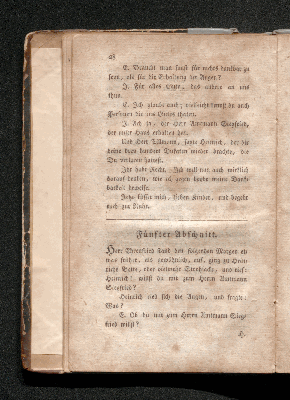 E. Braucht man sonst für nichts dankbar zu
seyn, als für die Erhaltung der Augen?
J. Für alles Gute, das andere an uns
thun.
E. Ich glaube auch; vielleicht kennst du auch
Personen die uns Gutes thaten.
J. Ach ja, der Herr Amtmann Siegfried,
der unser Haus erhalten hat.
Und Dein Vater, sagte Heinrich, der dir
deine hundert Dukaten wieder brachte, die
Du verloren hattest.
Ihr habt Recht. Ich will nun auch wirklich
darauf denken, wie ich gegen beyde meine Dank-
barkeit beweise.
Jetzt küsset mich, lieben Kinder, und begebt
euch zur Ruhe.
Fünfter Abschnitt.
Herr stand den folgenden Morgen et
was früher, als gewöhnlich, auf, ging zu Hein
richs Bette, oder vielmehr Strohsack, und rief:
Heinrich! willst du mit zum Herrn Amtmann
Siegfried?
Heinrich rieb sich die Augen, und fragte:
Was?
E. Ob du mit zum Herrn Amtmann Sieg-
fried willst?
H.